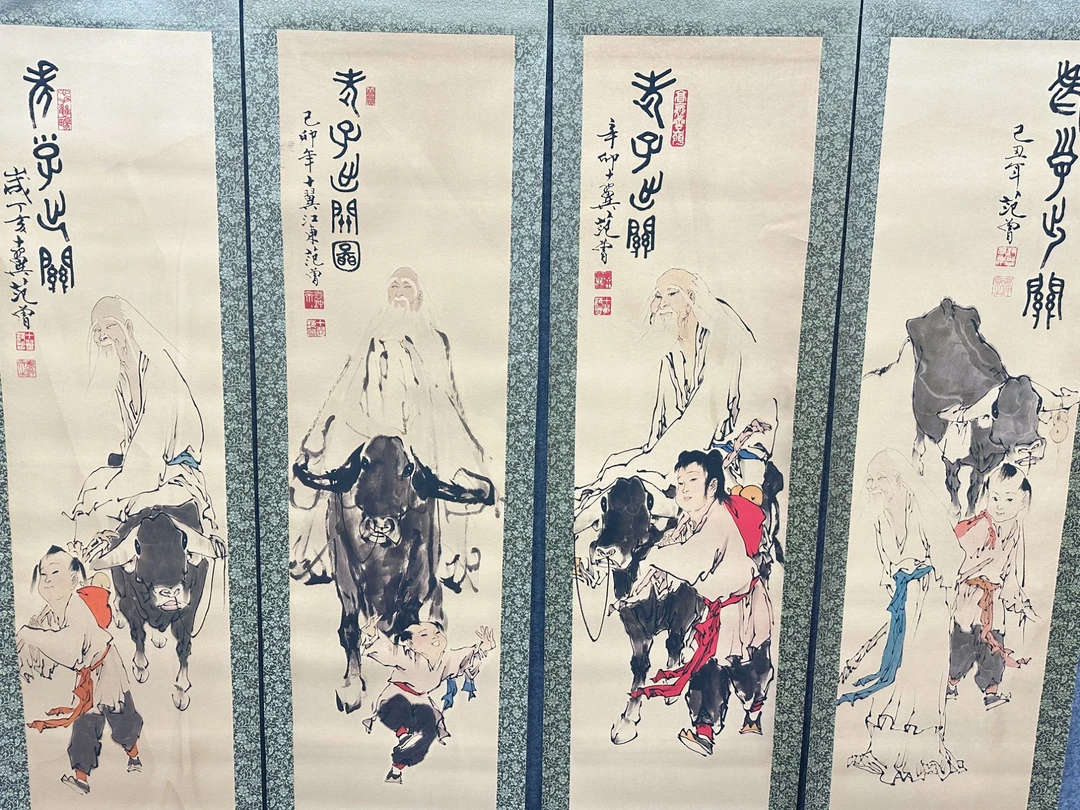 老子出關
歲丁亥十翼范曾
老子出關圖
己卯年十翼江東范曾
老子出關
辛卯十翼范曾
老子出關
己丑年范曾